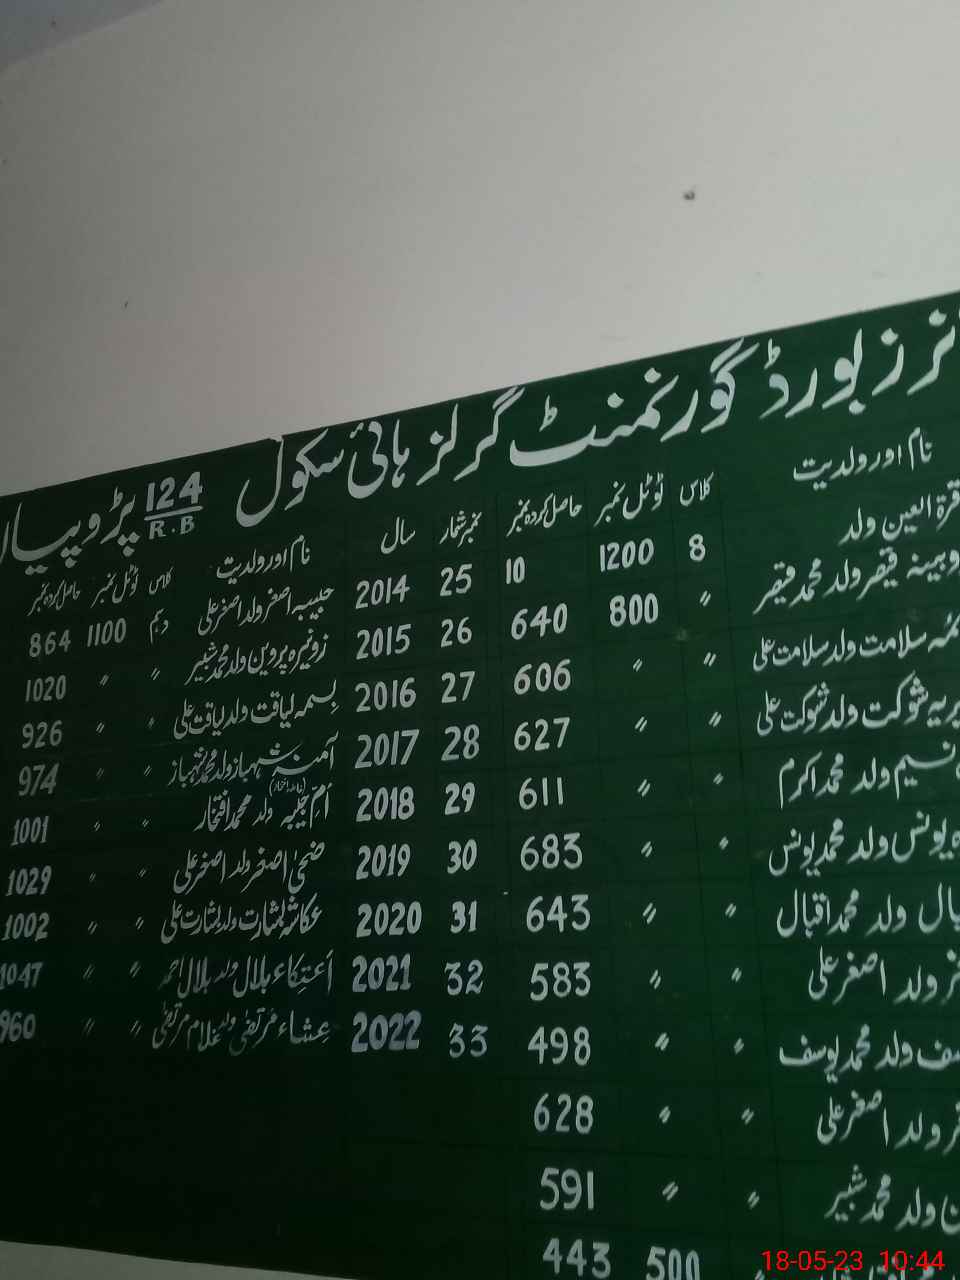 نرز بورڈ گورنمنٹ گرلز ہائی سکول 124 R.B پڑوپیاں
نام اور ولدیت کلاس ٹوٹل نمبر حاصل کردہ نمبر
قرۃ العین ولد 8 1200 10
قیصر ولد محمد قیصر 〃 800 640
سلامت ولد سلامت علی 〃 〃 606
شوکت ولد شوکت علی 〃 〃 627
نسیم ولد محمد اکرم 〃 〃 611
یونس ولد محمد یونس 〃 〃 683
ولد محمد اقبال 〃 〃 643
ولد اصغر علی 〃 〃 583
ولد محمد یوسف 〃 〃 498
ولد اصغر علی 〃 〃 628
ولد محمد شبیر 〃 〃 591
500 443
نمبر شمار سال نام اور ولدیت کلاس ٹوٹل نمبر حاصل کردہ نمبر
25 2014 حبیبہ اصغر ولد اصغر علی دہم 1100 864
26 2015 زونیرہ پروین ولد محمد شبیر 〃 〃 1020
27 2016 بسمہ لیاقت ولد لیاقت علی 〃 〃 926
28 2017 آمنہ شہباز ولد محمد شہباز 〃 〃 974
29 2018 اُمِّ حبیبہ ولد محمد افتخار 〃 〃 1001
30 2019 ضحیٰ اصغر ولد اصغر علی 〃 〃 1029
31 2020 عکاشہ بشارت ولد بشارت علی 〃 〃 1002
32 2021 ولد بلال احمد 〃 〃 1047
33 2022 عِشاء مرتضیٰ ولد غلام مرتضیٰ 〃 〃 960
18-05-23 10:44